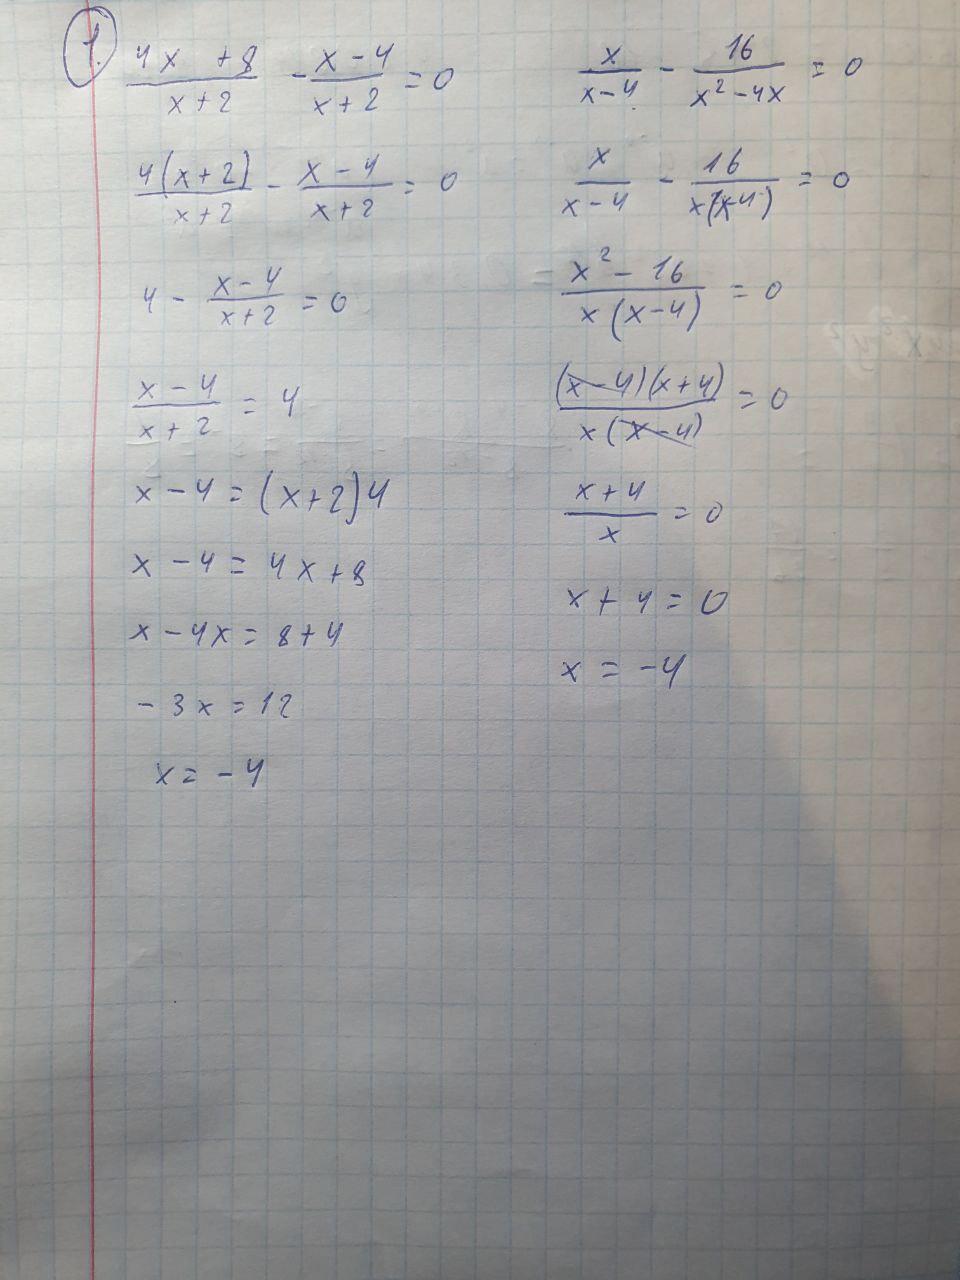 1.
(4x + 8)/(x + 2) - (x - 4)/(x + 2) = 0
(4(x + 2))/(x + 2) - (x - 4)/(x + 2) = 0
4 - (x - 4)/(x + 2) = 0
(x - 4)/(x + 2) = 4
x - 4 = (x + 2)4
x - 4 = 4x + 8
x - 4x = 8 + 4
- 3x = 12
x = - 4
x/(x - 4) - 16/(x² - 4x) = 0
x/(x - 4) - 16/(x(x - 4)) = 0
(x² - 16)/(x(x - 4)) = 0
((x - 4)(x + 4))/(x(x - 4)) = 0
(x + 4)/x = 0
x + 4 = 0
x = -4